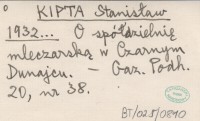 KIPTA Stanisław
1932... O spółdzielnię
mleczarską w Czarnym
Dunajcu. – Gaz. Podh.
20, nr 38.
BT/025/0840